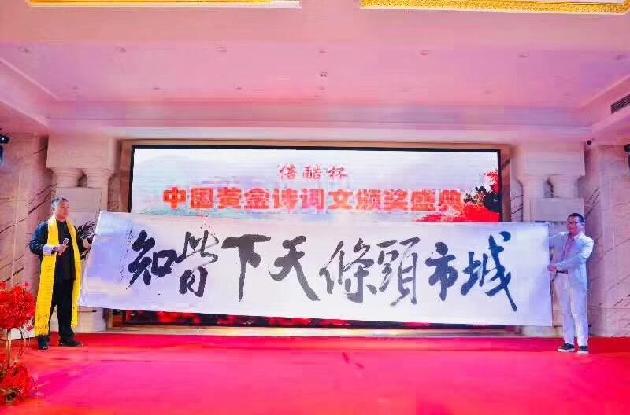 酷杯
中国黄金诗词文颁奖盛典
城市頭條天下皆知